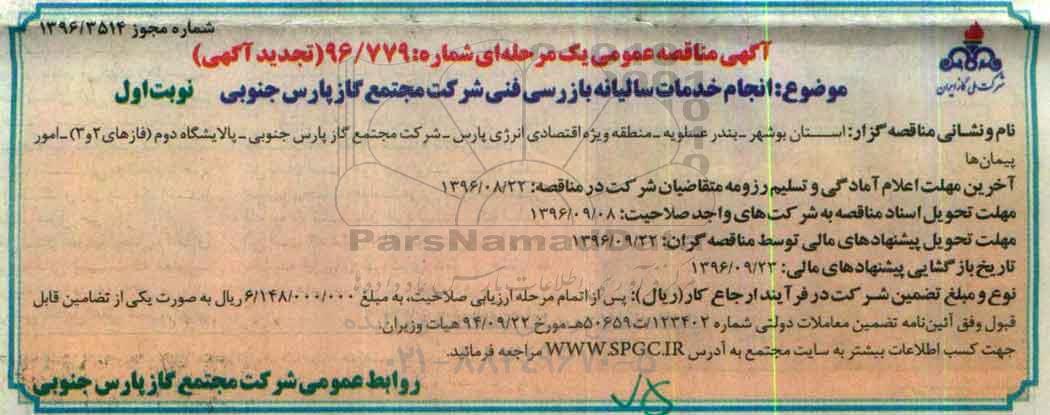 شماره مجوز ۱۳۹۶/۳۵۱۴
آگهی مناقصه عمومی یک مرحله‌ای شماره: ۹۶/۷۷۹ (تجدید آگهی)
شرکت ملی گاز ایران
موضوع: انجام خدمات سالیانه بازرسی فنی شرکت مجتمع گاز پارس جنوبی نوبت اول
نام و نشانی مناقصه گزار: استان بوشهر ـ بندر عسلویه ـ منطقه ویژه اقتصادی انرژی پارس ـ شرکت مجتمع گاز پارس جنوبی ـ پالایشگاه دوم (فازهای ۲و۳) ـ امور
پیمان‌ها
آخرین مهلت اعلام آمادگی و تسلیم رزومه متقاضیان شرکت در مناقصه: ۱۳۹۶/۰۸/۲۲
مهلت تحویل اسناد مناقصه به شرکت‌های واجد صلاحیت: ۱۳۹۶/۰۹/۰۸
مهلت تحویل پیشنهادهای مالی توسط مناقصه گران: ۱۳۹۶/۰۹/۲۲
تاریخ بازگشایی پیشنهادهای مالی: ۱۳۹۶/۰۹/۲۳
نوع و مبلغ تضمین شرکت در فرآیند ارجاع کار (ریال): پس از اتمام مرحله ارزیابی صلاحیت، به مبلغ ۶/۱۴۸/۰۰۰/۰۰۰ ریال به صورت یکی از تضامین قابل
قبول وفق آئین‌نامه تضمین معاملات دولتی شماره ۱۲۳۴۰۲/ت۵۰۶۵۹هـ مورخ ۹۴/۰۹/۲۲ هیات وزیران.
جهت کسب اطلاعات بیشتر به سایت مجتمع به آدرس WWW.SPGC.IR مراجعه فرمائید.
روابط عمومی شرکت مجتمع گاز پارس جنوبی
ParsNamadData